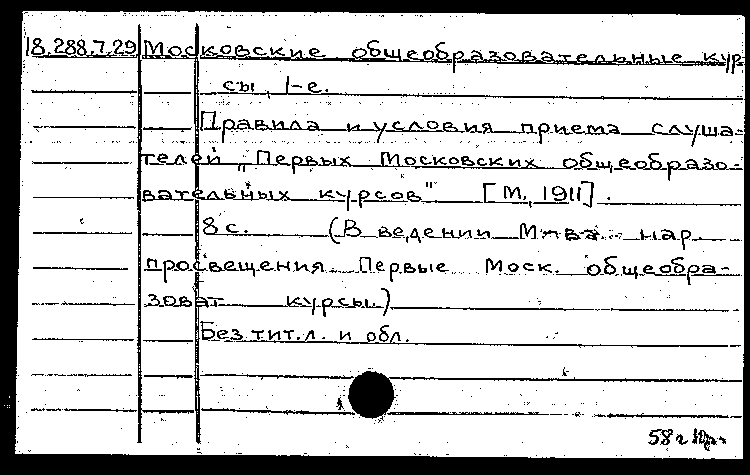 18.288.7.29 Московские общеобразовательные кур
сы, 1-е.
Правила и условия приема слуша-
телей „Первых Московских общеобразо-
вательных курсов" [М., 1911].
8 с. (В ведении М-ва нар.
просвещения. Первые Моск. общеобра-
зоват. курсы.)
Без тит. л. и обл.
58 г